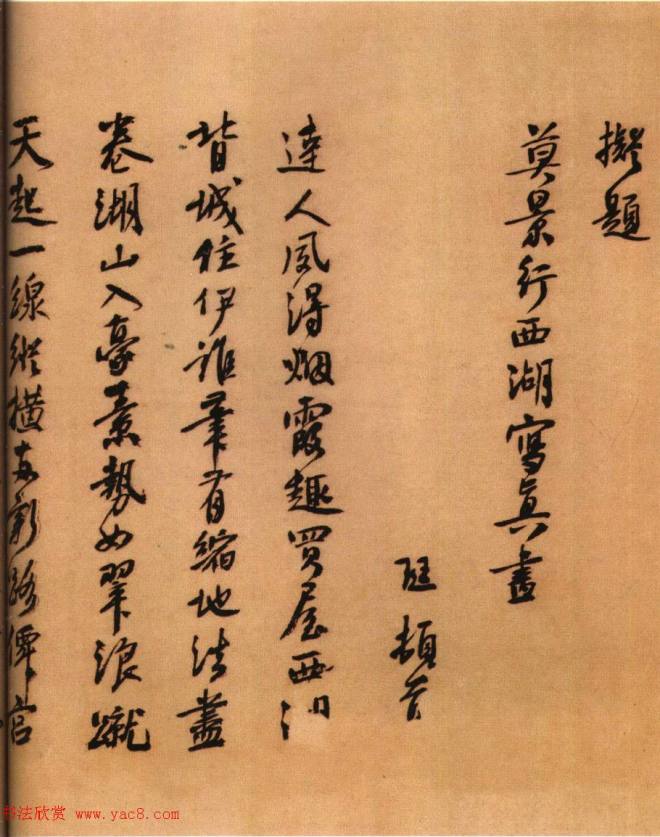 擬題
莫景行西湖寫真畫
頓首
達人夙得烟霞趣買屋西湖
背城住伊誰筆有縮地法盡
卷湖山入豪素勢如翠浪蹴
天起一線縱橫路
书法欣赏 www.yac8.com